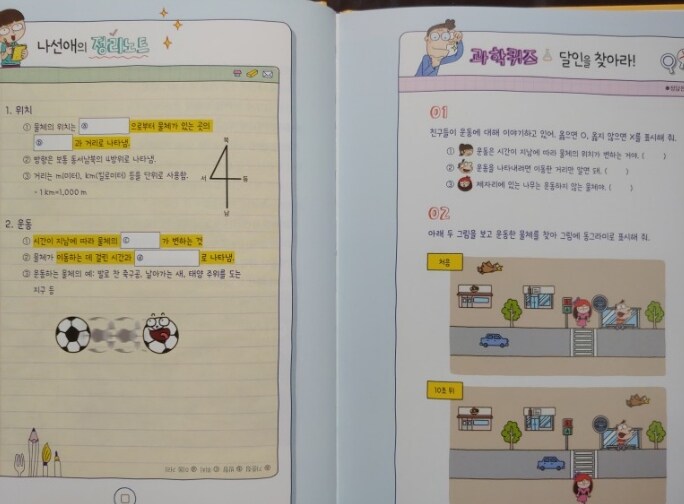 나선애의 정리노트
1. 위치
① 물체의 위치는 ⓐ 으로부터 물체가 있는 곳의
ⓑ 과 거리로 나타냄.
② 방향은 보통 동서남북의 4방위로 나타냄.
③ 거리는 m(미터), km(킬로미터) 등을 단위로 사용함.
- 1km=1,000 m
북
서 동
남
2. 운동
① 시간이 지남에 따라 물체의 ⓒ 가 변하는 것
② 물체가 이동하는 데 걸린 시간과 ⓓ 로 나타냄.
③ 운동하는 물체의 예: 발로 찬 축구공, 날아가는 새, 태양 주위를 도는
지구 등
과학퀴즈 달인을 찾아라!
01
친구들이 운동에 대해 이야기하고 있어. 옳으면 O, 옳지 않으면 X를 표시해 줘.
① 운동은 시간이 지남에 따라 물체의 위치가 변하는 거야. ( )
② 운동을 나타내려면 이동한 거리만 알면 돼. ( )
③ 제자리에 있는 나무는 운동하지 않는 물체야. ( )
02
아래 두 그림을 보고 운동한 물체를 찾아 그림에 동그라미로 표시해 줘.
처음
10초 뒤